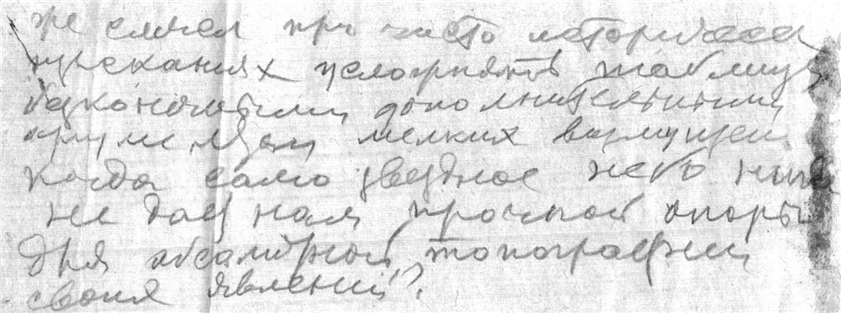 же смысл при чисто исторических
изысканиях усложнять таблицу
бесконечными дополнительными
аргументами мелких возмущений
когда само звездное небо ни
не дает нам прочной опоры
для абсолютной топографии
своих явлений?